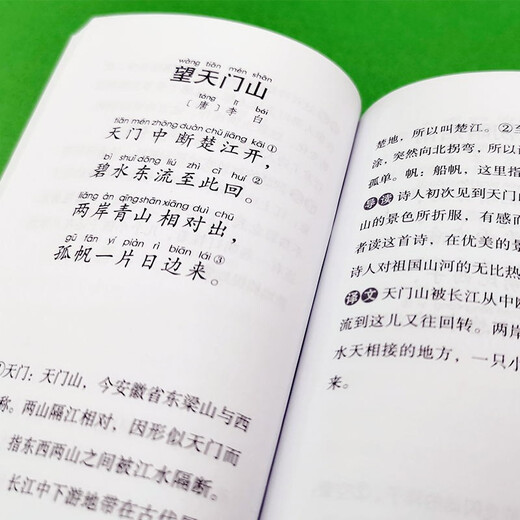 wàng tiān mén shān
望天门山
táng lǐ bái
〔唐〕李 白
tiān mén zhōng duàn chǔ jiāng kāi
天门中断楚江开，①
bì shuǐ dōng liú zhì cǐ huí
碧水东流至此回。②
liǎng àn qīng shān xiāng duì chū
两岸青山相对出，
gū fān yí piàn rì biān lái
孤帆一片日边来。③
①天门：天门山，今安徽省东梁山与西
称。两山隔江相对，因形似天门而
指东西两山之间被江水隔断。
长江中下游地带在古代
楚地，所以叫楚江。②至
涂，突然向北拐弯，所以
孤单。帆：船帆，这里指
导读 诗人初次见到天门
山的景色所折服，有感而
者读这首诗，在优美的景
诗人对祖国山河的无比热
译文 天门山被长江从中
流到这儿又往回转。两岸
水天相接的地方，一只小
来。